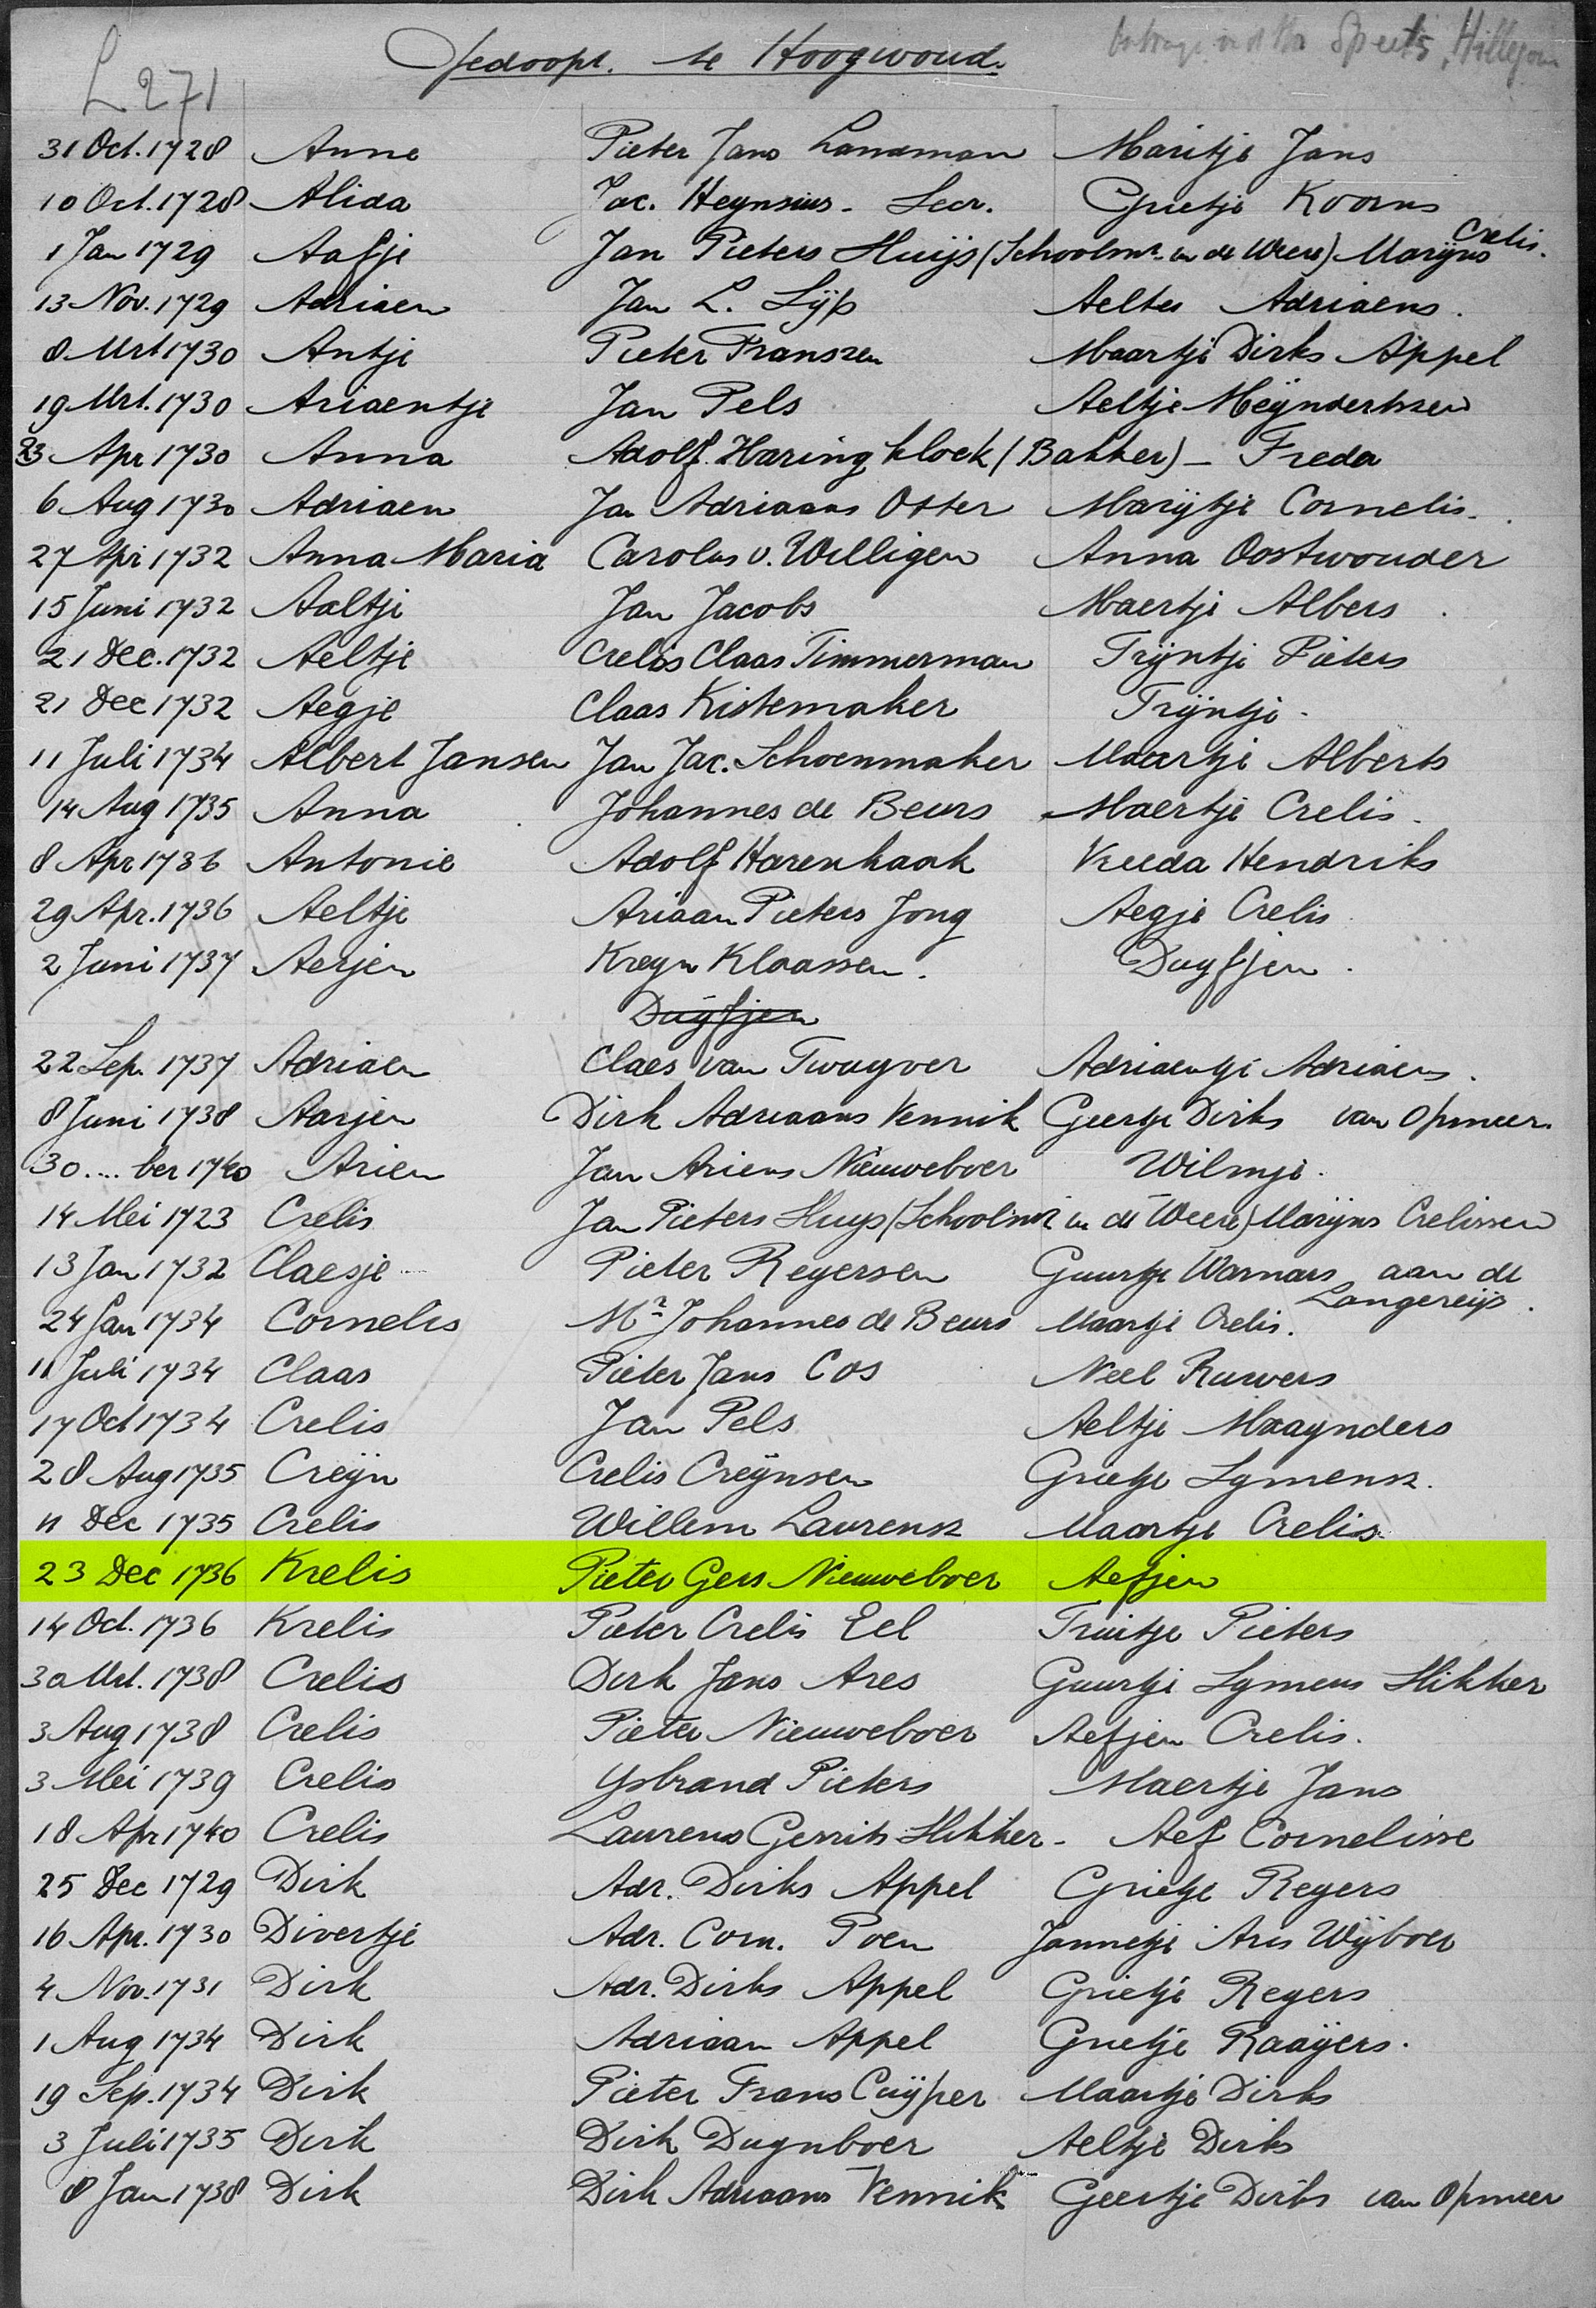 L 271
Gedoopt te Hoogwoud.
Speets, Hillegom
31 Oct. 1728 Anne Pieter Jans Landman Maritje Jans
10 Oct. 1728 Alida Jac. Heynsius - Secr. Grietje Koorns
1 Jan 1729 Aafje Jan Pieters Huijs (Schoolmr. in de Weere) Marijns Crelis.
13 Nov. 1729 Adriaen Jan L. Lijp Aeltes Adriaens.
8 Mrt 1730 Antje Pieter Franszen Maartje Dirks Appel
19 Mrt. 1730 Ariaentje Jan Pels Aeltje Meijndertszen
23 Apr 1730 Anna Adolf Haring klock (Bakker) - Freda
6 Aug 1730 Adriaen Jan Adriaans Otter Marijtje Cornelis.
27 Apr 1732 Anna Maria Carolus v. Willigen Anna Oostwouder
15 Juni 1732 Aaltje Jan Jacobs Maertje Albers
21 Dec. 1732 Aeltje Crelis Claas Timmerman Trijntje Pieters
21 Dec 1732 Aegje Claas Kistemaker Trijntje -
11 Juli 1734 Albert Jansen Jan Jac. Schoenmaker Maartje Alberts
14 Aug 1735 Anna Johannes de Beurs Maertje Crelis.
8 Apr 1736 Antonie Adolf Harenkaak Vreeda Hendriks
29 Apr. 1736 Aeltje Ariaan Pieters Jong Aegje Crelis
2 Juni 1737 Aerjen Kreyn Klaassen. Duyfjen.
Duyfjen
22 Sep. 1737 Adriaen Claes van Twuyver Adriaentje Adriaens.
8 Juni 1738 Aarjen Dirk Adriaans Vennik Geertje Dirks van Opmeer.
30 .... ber 1740 Arien Jan Ariens Nieuweboer Wilmje.
14 Mei 1723 Crelis Jan Pieters Huys (Schoolmr in de Weere) Marijns Crelissen
13 Jan 1732 Claesje Pieter Reyersen Guurtje Warnars aan de Langereijs.
24 Jan 1734 Cornelis Mr. Johannes de Beurs Maartje Crelis.
11 Juli 1734 Claas Pieter Jans Cos Neel Ruwers
17 Oct 1734 Crelis Jan Pels Aeltje Maaynders
28 Aug 1735 Creijn Crelis Creijnsen Grietje Symensz.
11 Dec 1735 Crelis Willem Laurensz Maartje Crelis
23 Dec 1736 Krelis Pieter Gers Nieuweboer Aefjen
14 Oct. 1736 Krelis Pieter Crelis Eel Truitje Pieters
30 Mrt. 1738 Crelis Dirk Jans Ares Guurtje Symens Slikker
3 Aug 1738 Crelis Pieter Nieuweboer Aefjen Crelis.
3 Mei 1739 Crelis Ysbrand Pieters Maertje Jans
18 Apr 1740 Crelis Laurens Gerrits Slikker - Aef Cornelisse
25 Dec 1729 Dirk Adr. Dirks Appel Grietje Reyers
16 Apr. 1730 Divertje Adr. Corn. Poen Jannetje Aris Wijboer
4 Nov. 1731 Dirk Adr. Dirks Appel Grietje Reyers
1 Aug 1734 Dirk Adriaan Appel Grietje Raaijers.
19 Sep. 1734 Dirk Pieter Frans Cuijper Maartje Dirks
3 Juli 1735 Dirk Dirk Duynboer Aeltje Dirks
8 Jan 1738 Dirk Dirk Adriaans Vennik Geertje Dirks van Opmeer